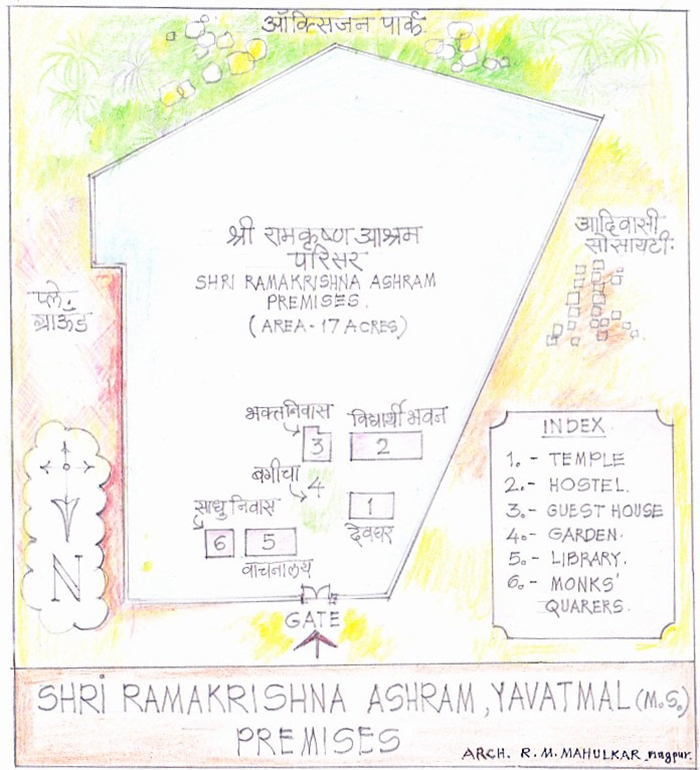 ऑक्सिजन पार्क
श्री रामकृष्ण आश्रम
परिसर
SHRI RAMAKRISHNA ASHRAM
PREMISES.
(AREA - 17 ACRES)
आदिवासी
सोसायटी.
प्ले.
ग्राऊंड
भक्तनिवास
3
विद्यार्थी भवन
2
बगीचा
4
1
देवघर
साधु निवास
6
5
वाचनालय
GATE
N
INDEX
1.- TEMPLE
2.- HOSTEL.
3.- GUEST HOUSE
4.- GARDEN.
5.- LIBRARY.
6.- MONKS'
QUARERS.
SHRI RAMAKRISHNA ASHRAM, YAVATMAL (M.S.)
PREMISES
ARCH. R. M. MAHULKAR, nagpur